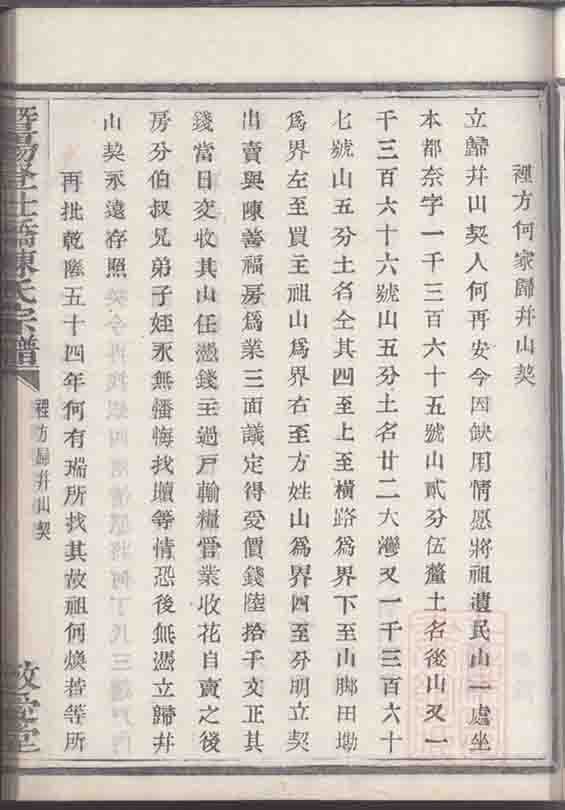 裡方何家歸并山契
立歸并山契人何再安今因缺用情愿將祖遺民山一處坐
本都奈字一千三百六十五號山貳分伍釐土名後山又一
千三百六十六號山五分土名廿二大灣又一千三百六十
七號山五分土名仝其四至上至橫路爲界下至山脚田塝
爲界左至買主祖山爲界右至方姓山爲界四至分明立契
出賣與陳善福房爲業三面議定得受價錢陸拾千文正其
錢當日交收其山任憑錢主過戶輸糧管業收花自賣之後
房分伯叔兄弟子姪永無憣悔找壩等情恐後無憑立歸并
山契永遠存照
再批乾隆五十四年何有瑞所找其故祖何煥若等所
暨陽 仕 陳氏宗譜
裡方歸并山契
堂